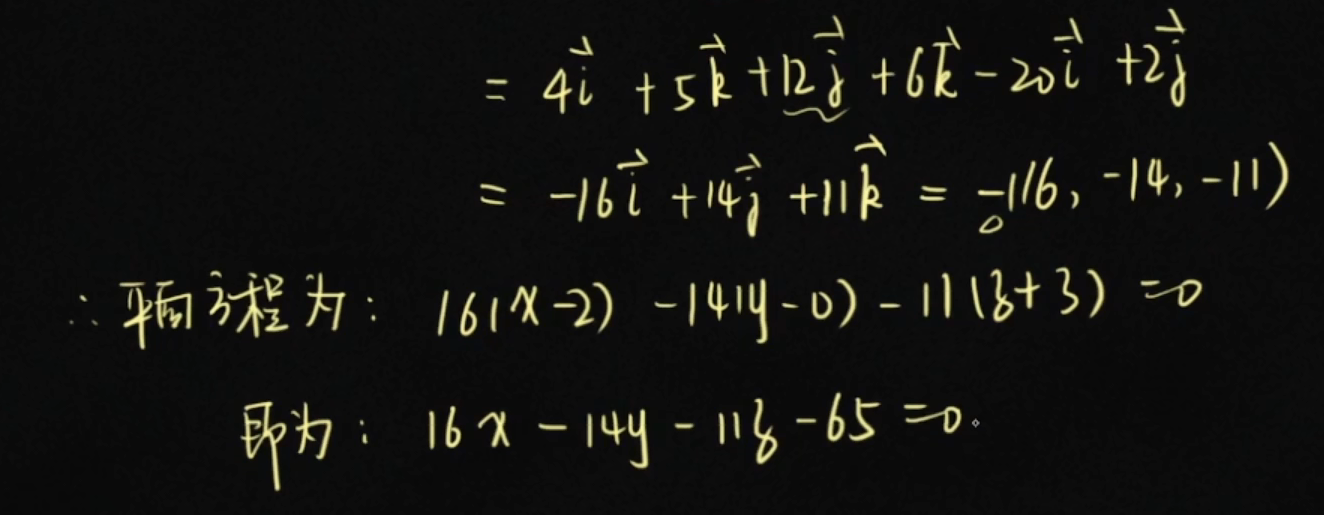 = 4i⃗ + 5k⃗ + 12j⃗ + 6k⃗ - 20i⃗ + 2j⃗
= -16i⃗ + 14j⃗ + 11k⃗ = -(16, -14, -11)
∴ 平面方程为: 16(x-2) -14(y-0) - 11(z+3) =0
即为: 16x - 14y - 11z - 65 =0.